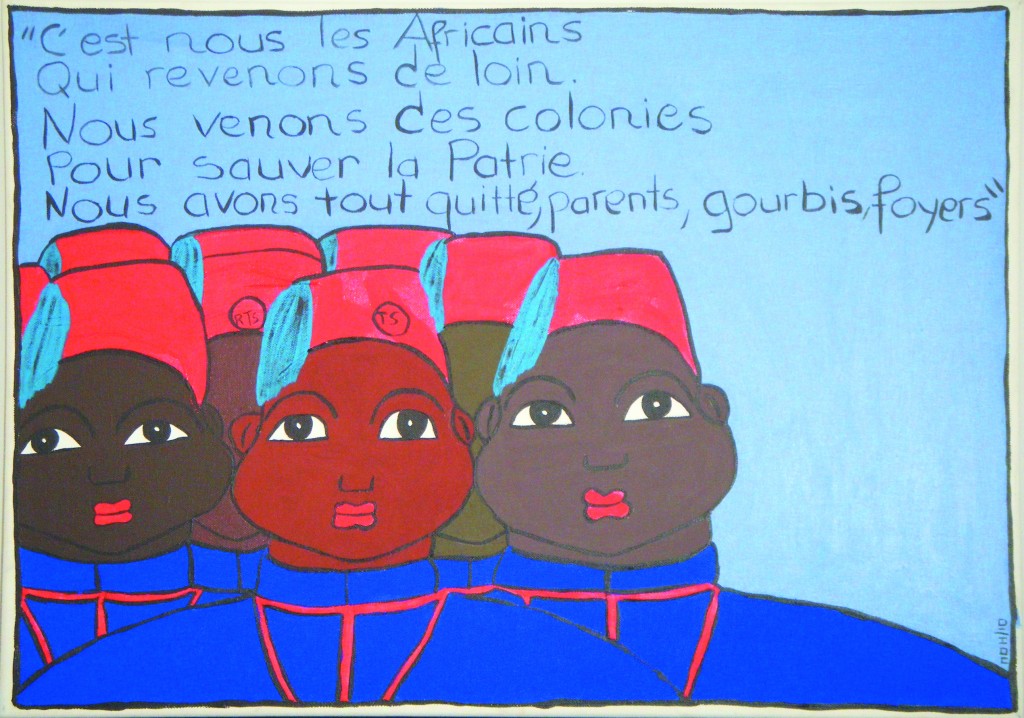 "C'est nous les Africains
Qui revenons de loin.
Nous venons des colonies
Pour sauver la Patrie.
Nous avons tout quitté, parents, gourbis, foyers"
RTS
TS